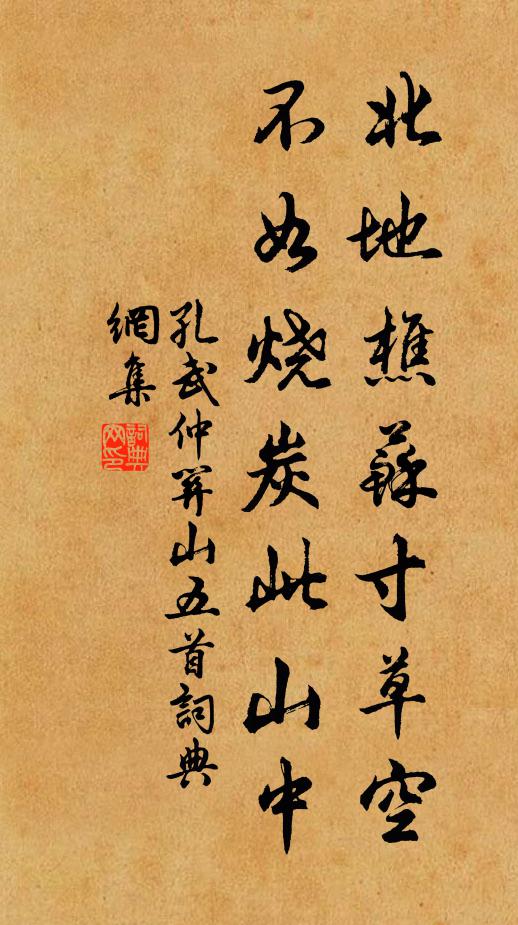 北地樵蘇寸草空
不如烧炭此山中
孔武仲開山五首詞典
網集
詞典
网印